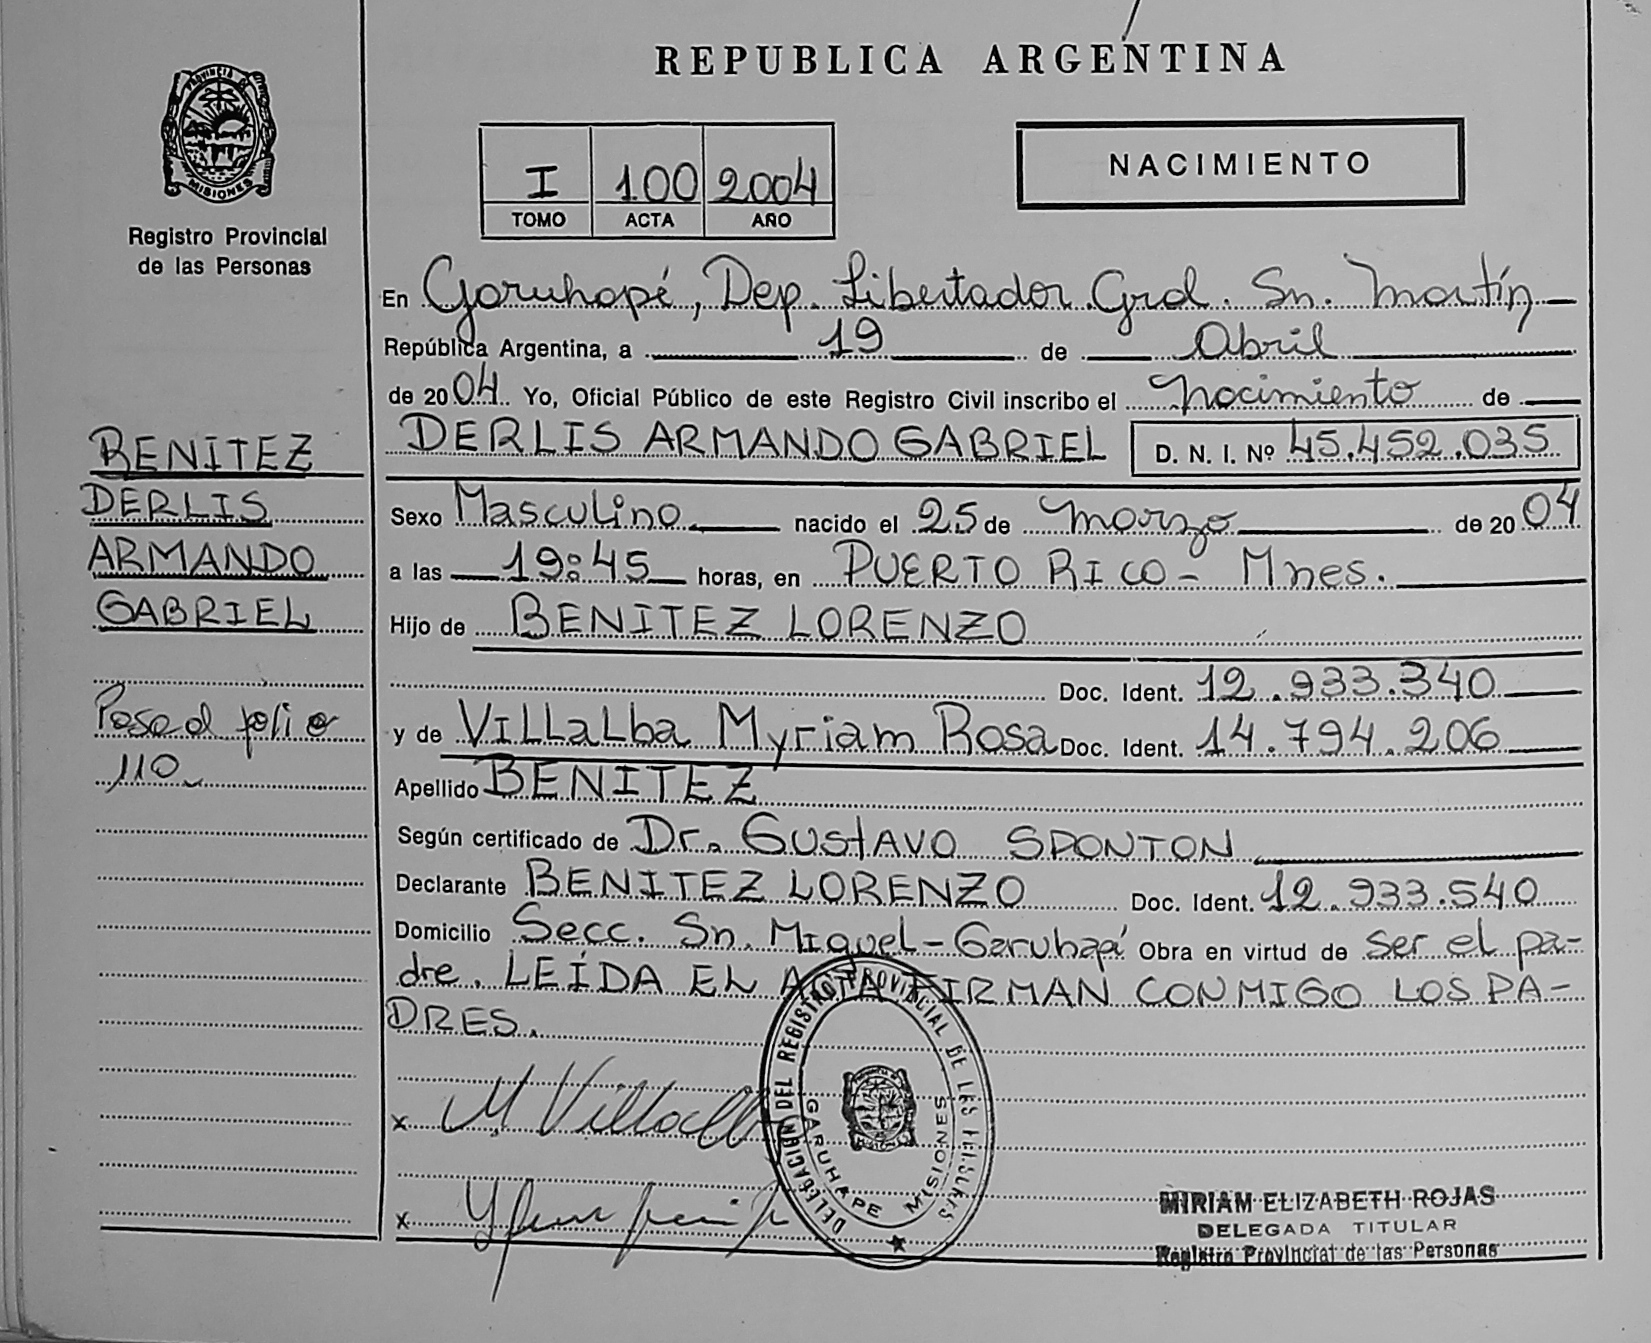 REPUBLICA ARGENTINA
PROVINCIA DE
MISIONES
Registro Provincial
de las Personas
I 100 2004
TOMO ACTA AÑO
NACIMIENTO
En Garuhapé, Dep. Libertador Gral. Sn. Martín
República Argentina, a 19 de Abril
de 2004 Yo, Oficial Público de este Registro Civil inscribo el Nacimiento de
DERLIS ARMANDO GABRIEL D. N. I. Nº 45.452.035
BENITEZ
DERLIS
ARMANDO
GABRIEL
Pasa al folio
110
Sexo Masculino nacido el 25 de Marzo de 2004
a las 19:45 horas, en PUERTO RICO - Mnes.
Hijo de BENITEZ LORENZO
Doc. Ident. 12.933.340
y de VILLaLba Myriam Rosa Doc. Ident. 14.794.206
Apellido BENITEZ
Según certificado de Dr. GUStAVO SPONTON
Declarante BENITEZ LORENZO Doc. Ident. 12.933.540
Domicilio Secc. Sn. Miguel - Garuhapé Obra en virtud de ser el pa-
dre. LEÍDA EL ACTA FIRMAN CONMIGO LOS PA-
DRES.
x M Villalba
x
DELEGACION DEL REGISTRO PROVINCIAL DE LAS PERSONAS
GARUHAPE MISIONES
MIRIAM ELIZABETH ROJAS
DELEGADA TITULAR
Registro Provincial de las Personas